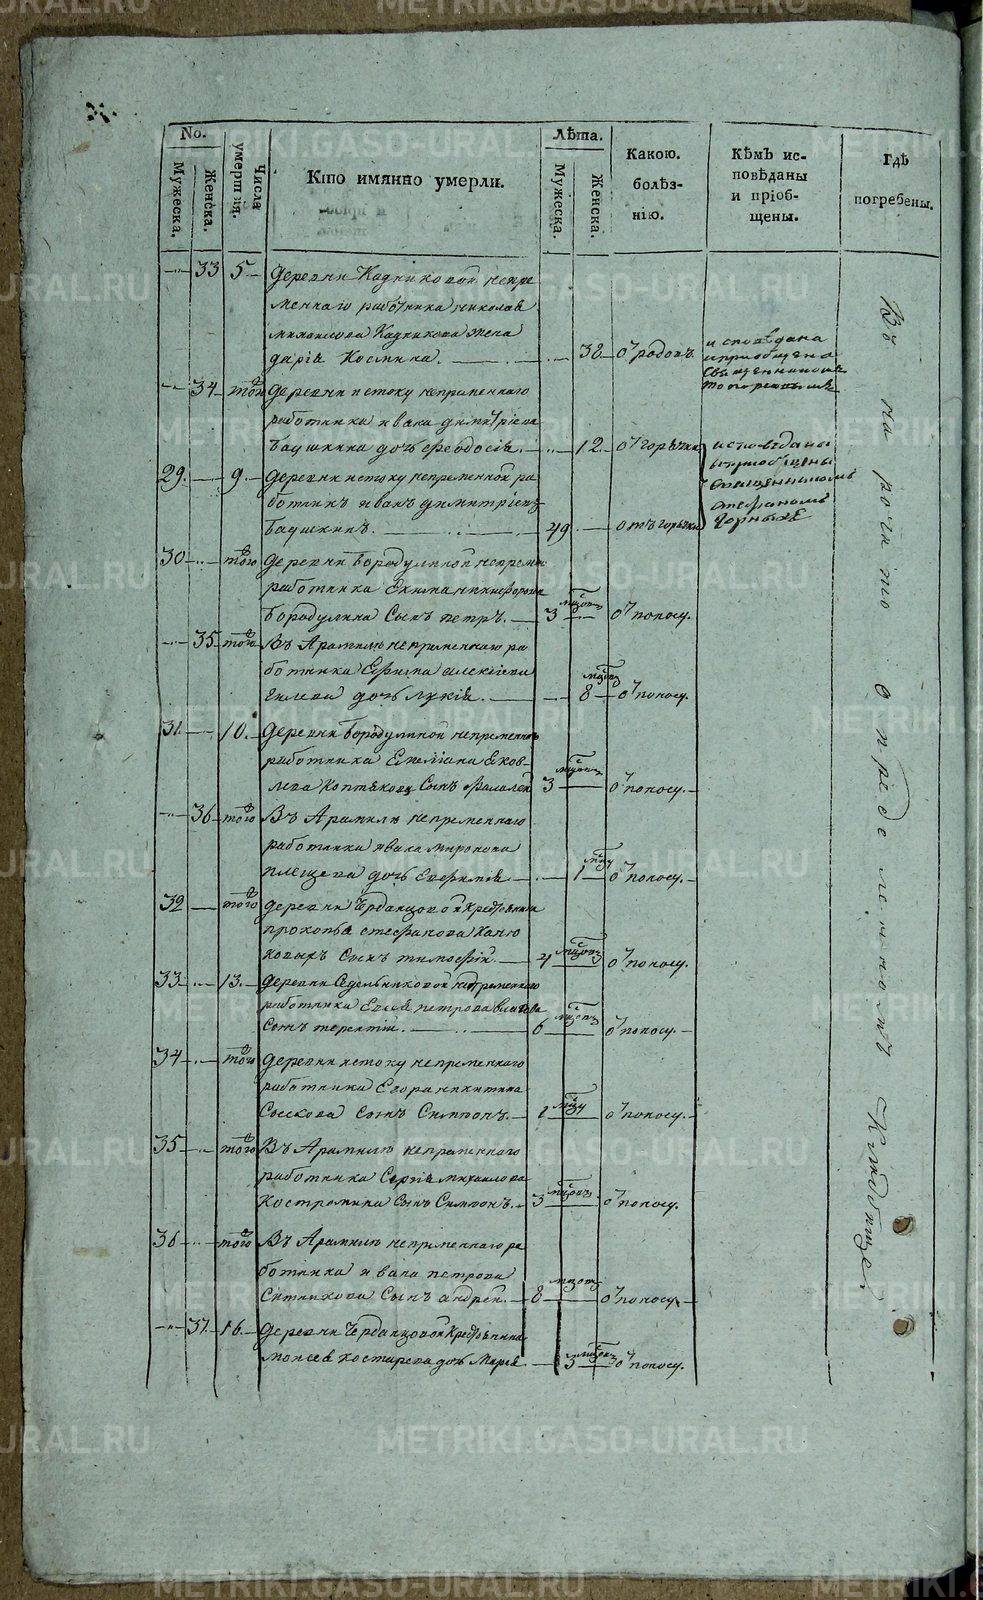 No.
Мужеска.
Женска.
Числа умертвія.
Кто имянно умерли.
Лѣта.
Мужеска.
Женска.
Какою.
болѣз-
нію.
Кѣмъ ис-
повѣданы
и пріоб-
щены.
Гдѣ
погребены.
33 5 деревни Кадниковой непре
меннаго работника николая
михаилова Кадникова жена
дарія Космина. 38 о родовъ исповѣдана
и приобщена
Священникомъ
34 того деревни истоку непременнаго
работника ивана димитріева
баушкина дочь Феодосія. 12 о горячки исповѣданы
и приобщены
священникомъ
стефаномъ
29 9 деревни истоку непременной ра
ботникъ иванъ димитріевъ
баушкинъ. 49 отъ горячки
30 того деревни бородулиной непремен
работника
бородулина Сынъ петръ. 3 мцовъ о поносу.
35 того Въ Арамили непременнаго ра
ботника Ефима алексіева
дочь лукія. 8 мцовъ о поносу.
31 10 деревни бородулиной непременнаго
работника Емеліана Яков-
лева Коптякова Сынъ Фалалей 3 мцовъ о поносу.
36 того Въ Арамили непременнаго
работника ивана миронова
плещева дочь Евфимія 1 мцу о поносу.
32 того деревни Чердандовой Крестьянина
прокопья стефанова
Сынъ тимофѣй. 4 мцовъ о поносу.
33 13 деревни Седельниковой непременнаго
работника петрова
Сынъ терентій. 6 мцовъ о поносу.
34 того деревни истоку непременнаго
работника Егора никитина
Соскова Сынъ Симеонъ. 1 мцу о поносу.
35 того Въ Арамили непременнаго
работника Сергія михаилова
Костромина Сынъ Симеонъ. 3 мцовъ о поносу.
36 того Въ Арамили непременнаго ра
ботника ивана петрова
Ситникова Сынъ андрей. 8 мцовъ о поносу.
37 16 деревни Чердандовой Крестьянина
моисея костарева дочь Марія. 3 мцовъ о поносу.
Во на рочито о пределенномъ Кладбище
METRIKI.GASO-URAL.RU